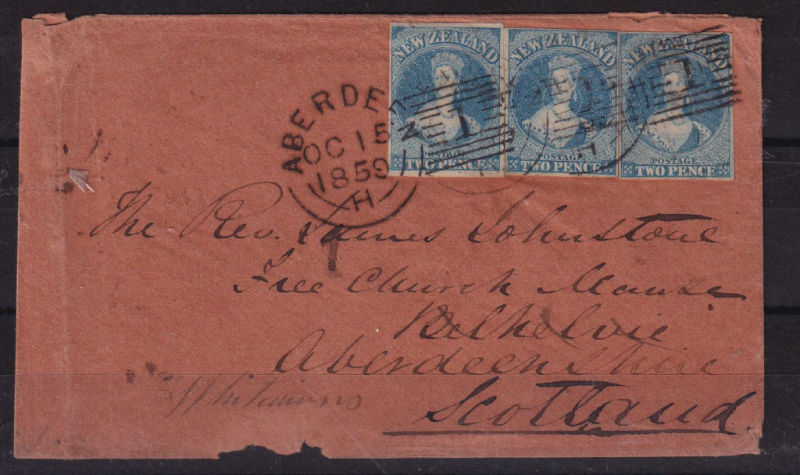 NEW ZEALAND NEW ZEALAND NEW ZEALAND
POSTAGE POSTAGE POSTAGE
TWO PENCE TWO PENCE TWO PENCE
1 1
ABERDEEN
OC 15
1859
H
The Rev. James Johnstone
Free Church Manse
Belhelvie
Aberdeenshire
Scotland